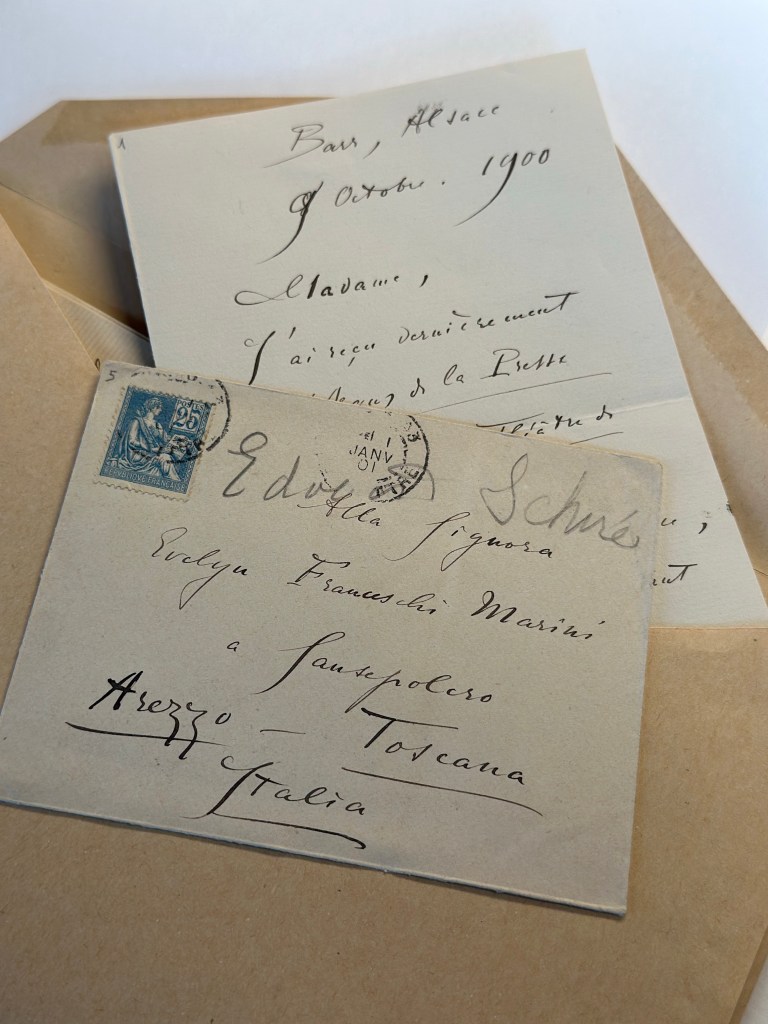 1
Barr, Alsace
9 Octobre. 1900
Madame,
J'ai reçu dernièrement
de la Presse
Théâtre de
5
25
RÉPUBLIQUE FRANÇAISE
1
JANV
01
Edouard Schuré
Alla Signora
Evelyn Franceschi Marini
a Sansepolcro
Arezzo – Toscana
Italia